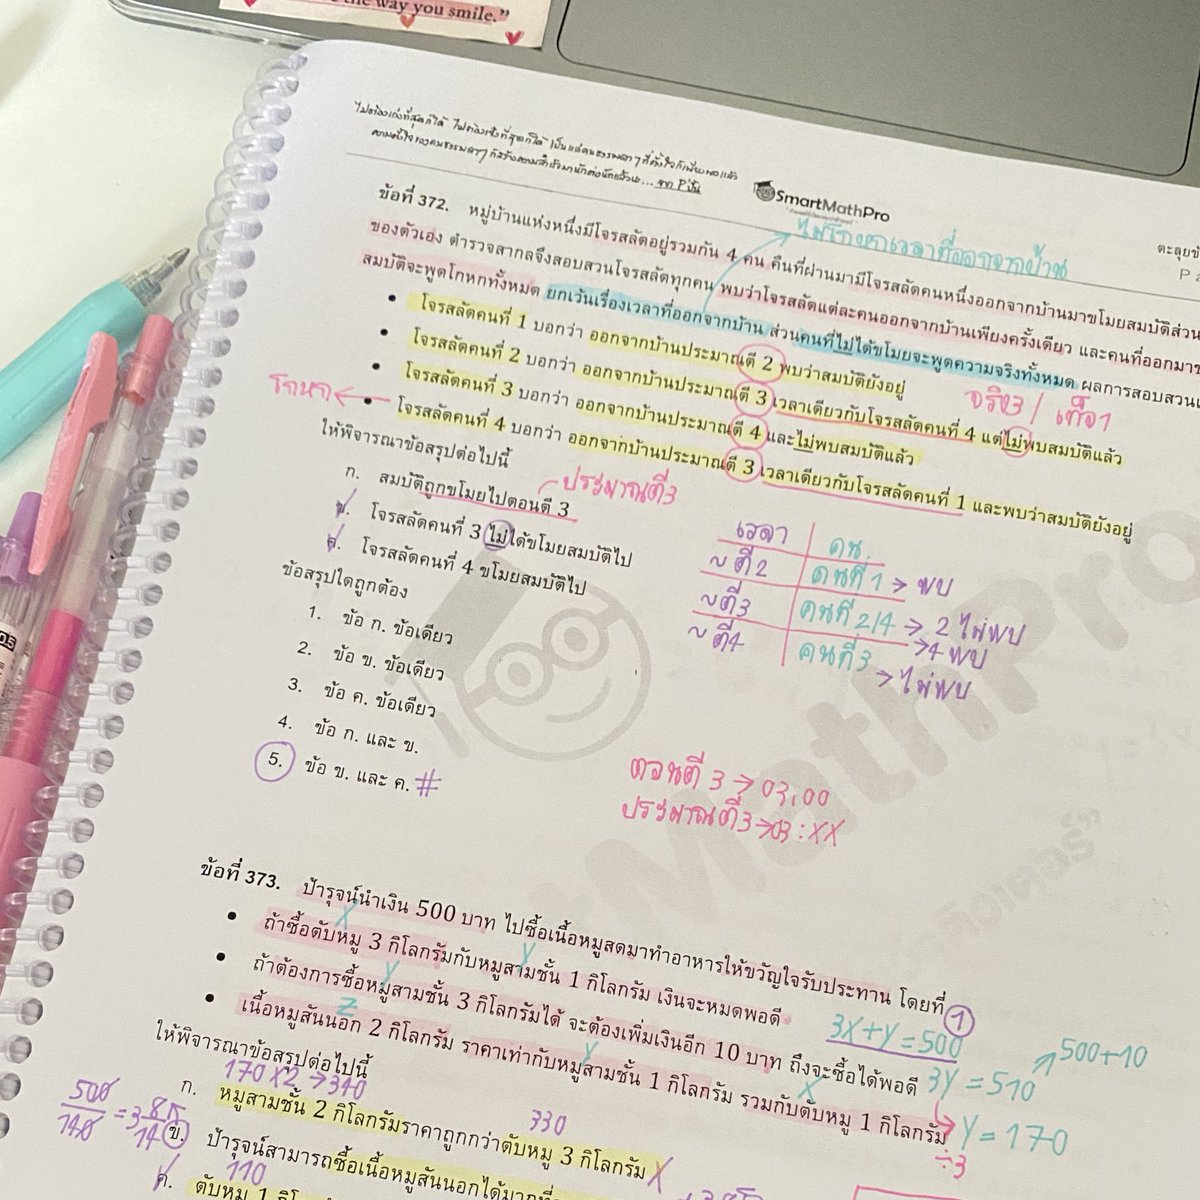 the way you smile."
ไม่ต้องเก่งที่สุดก็ได้ ไม่ต้องเจ๋งที่สุดก็ได้ เป็นแค่คนธรรมดาๆ ที่ตั้งใจก็เพียงพอแล้ว
ความตั้งใจของคนธรรมดาๆ ก็สร้างความสำเร็จมานักต่อนักแล้วนะ... จาก P'ปั้น
SmartMathPro
ไม่โกหกเวลาที่ออกจากบ้าน
ข้อที่ 372. หมู่บ้านแห่งหนึ่งมีโจรสลัดอยู่รวมกัน 4 คน คืนที่ผ่านมามีโจรสลัดคนหนึ่งออกจากบ้านมาขโมยสมบัติส่วน
ของตัวเอง ตำรวจสากลจึงสอบสวนโจรสลัดทุกคน พบว่าโจรสลัดแต่ละคนออกจากบ้านเพียงครั้งเดียว และคนที่ออกมาข
สมบัติจะพูดโกหกทั้งหมด ยกเว้นเรื่องเวลาที่ออกจากบ้าน ส่วนคนที่ไม่ได้ขโมยจะพูดความจริงทั้งหมด ผลการสอบสวนเ
• โจรสลัดคนที่ 1 บอกว่า ออกจากบ้านประมาณตี 2 พบว่าสมบัติยังอยู่
จริง3 / เท็จ1
• โจรสลัดคนที่ 2 บอกว่า ออกจากบ้านประมาณตี 3 เวลาเดียวกับโจรสลัดคนที่ 4 แต่ไม่พบสมบัติแล้ว
• โจรสลัดคนที่ 3 บอกว่า ออกจากบ้านประมาณตี 4 และไม่พบสมบัติแล้ว
โกหก ← • โจรสลัดคนที่ 4 บอกว่า ออกจากบ้านประมาณตี 3 เวลาเดียวกับโจรสลัดคนที่ 1 และพบว่าสมบัติยังอยู่
ให้พิจารณาข้อสรุปต่อไปนี้
ก. สมบัติถูกขโมยไปตอนตี 3
ประมาณตี3
ข. โจรสลัดคนที่ 3 ไม่ได้ขโมยสมบัติไป
ค. โจรสลัดคนที่ 4 ขโมยสมบัติไป
เวลา คน
~ ตี2 คนที่ 1 → พบ
~ ตี3 คนที่ 2/4 → 2 ไม่พบ
→ 4 พบ
~ ตี4 คนที่ 3 → ไม่พบ
ข้อสรุปใดถูกต้อง
1. ข้อ ก. ข้อเดียว
2. ข้อ ข. ข้อเดียว
3. ข้อ ค. ข้อเดียว
4. ข้อ ก. และ ข.
5. ข้อ ข. และ ค. #
ตอนตี 3 → 03.00
ประมาณตี3 → 03:XX
ข้อที่ 373. ป้ารุจน์นำเงิน 500 บาท ไปซื้อเนื้อหมูสดมาทำอาหารให้ขวัญใจรับประทาน โดยที่
• ถ้าซื้อตับหมู 3 กิโลกรัมกับหมูสามชั้น 1 กิโลกรัม เงินจะหมดพอดี
x y
3x+y=500 1
• ถ้าต้องการซื้อหมูสามชั้น 3 กิโลกรัมได้ จะต้องเพิ่มเงินอีก 10 บาท ถึงจะซื้อได้พอดี
y
3y = 510 500+10
• เนื้อหมูสันนอก 2 กิโลกรัม ราคาเท่ากับหมูสามชั้น 1 กิโลกรัม รวมกับตับหมู 1 กิโลกรัม
z y x
y = 170
÷3
ให้พิจารณาข้อสรุปต่อไปนี้
170 x2 → 340
330
ก. หมูสามชั้น 2 กิโลกรัมราคาถูกกว่าตับหมู 3 กิโลกรัม
ข. ป้ารุจน์สามารถซื้อเนื้อหมูสันนอกได้มากที่
110
ค. ตับหมู 1